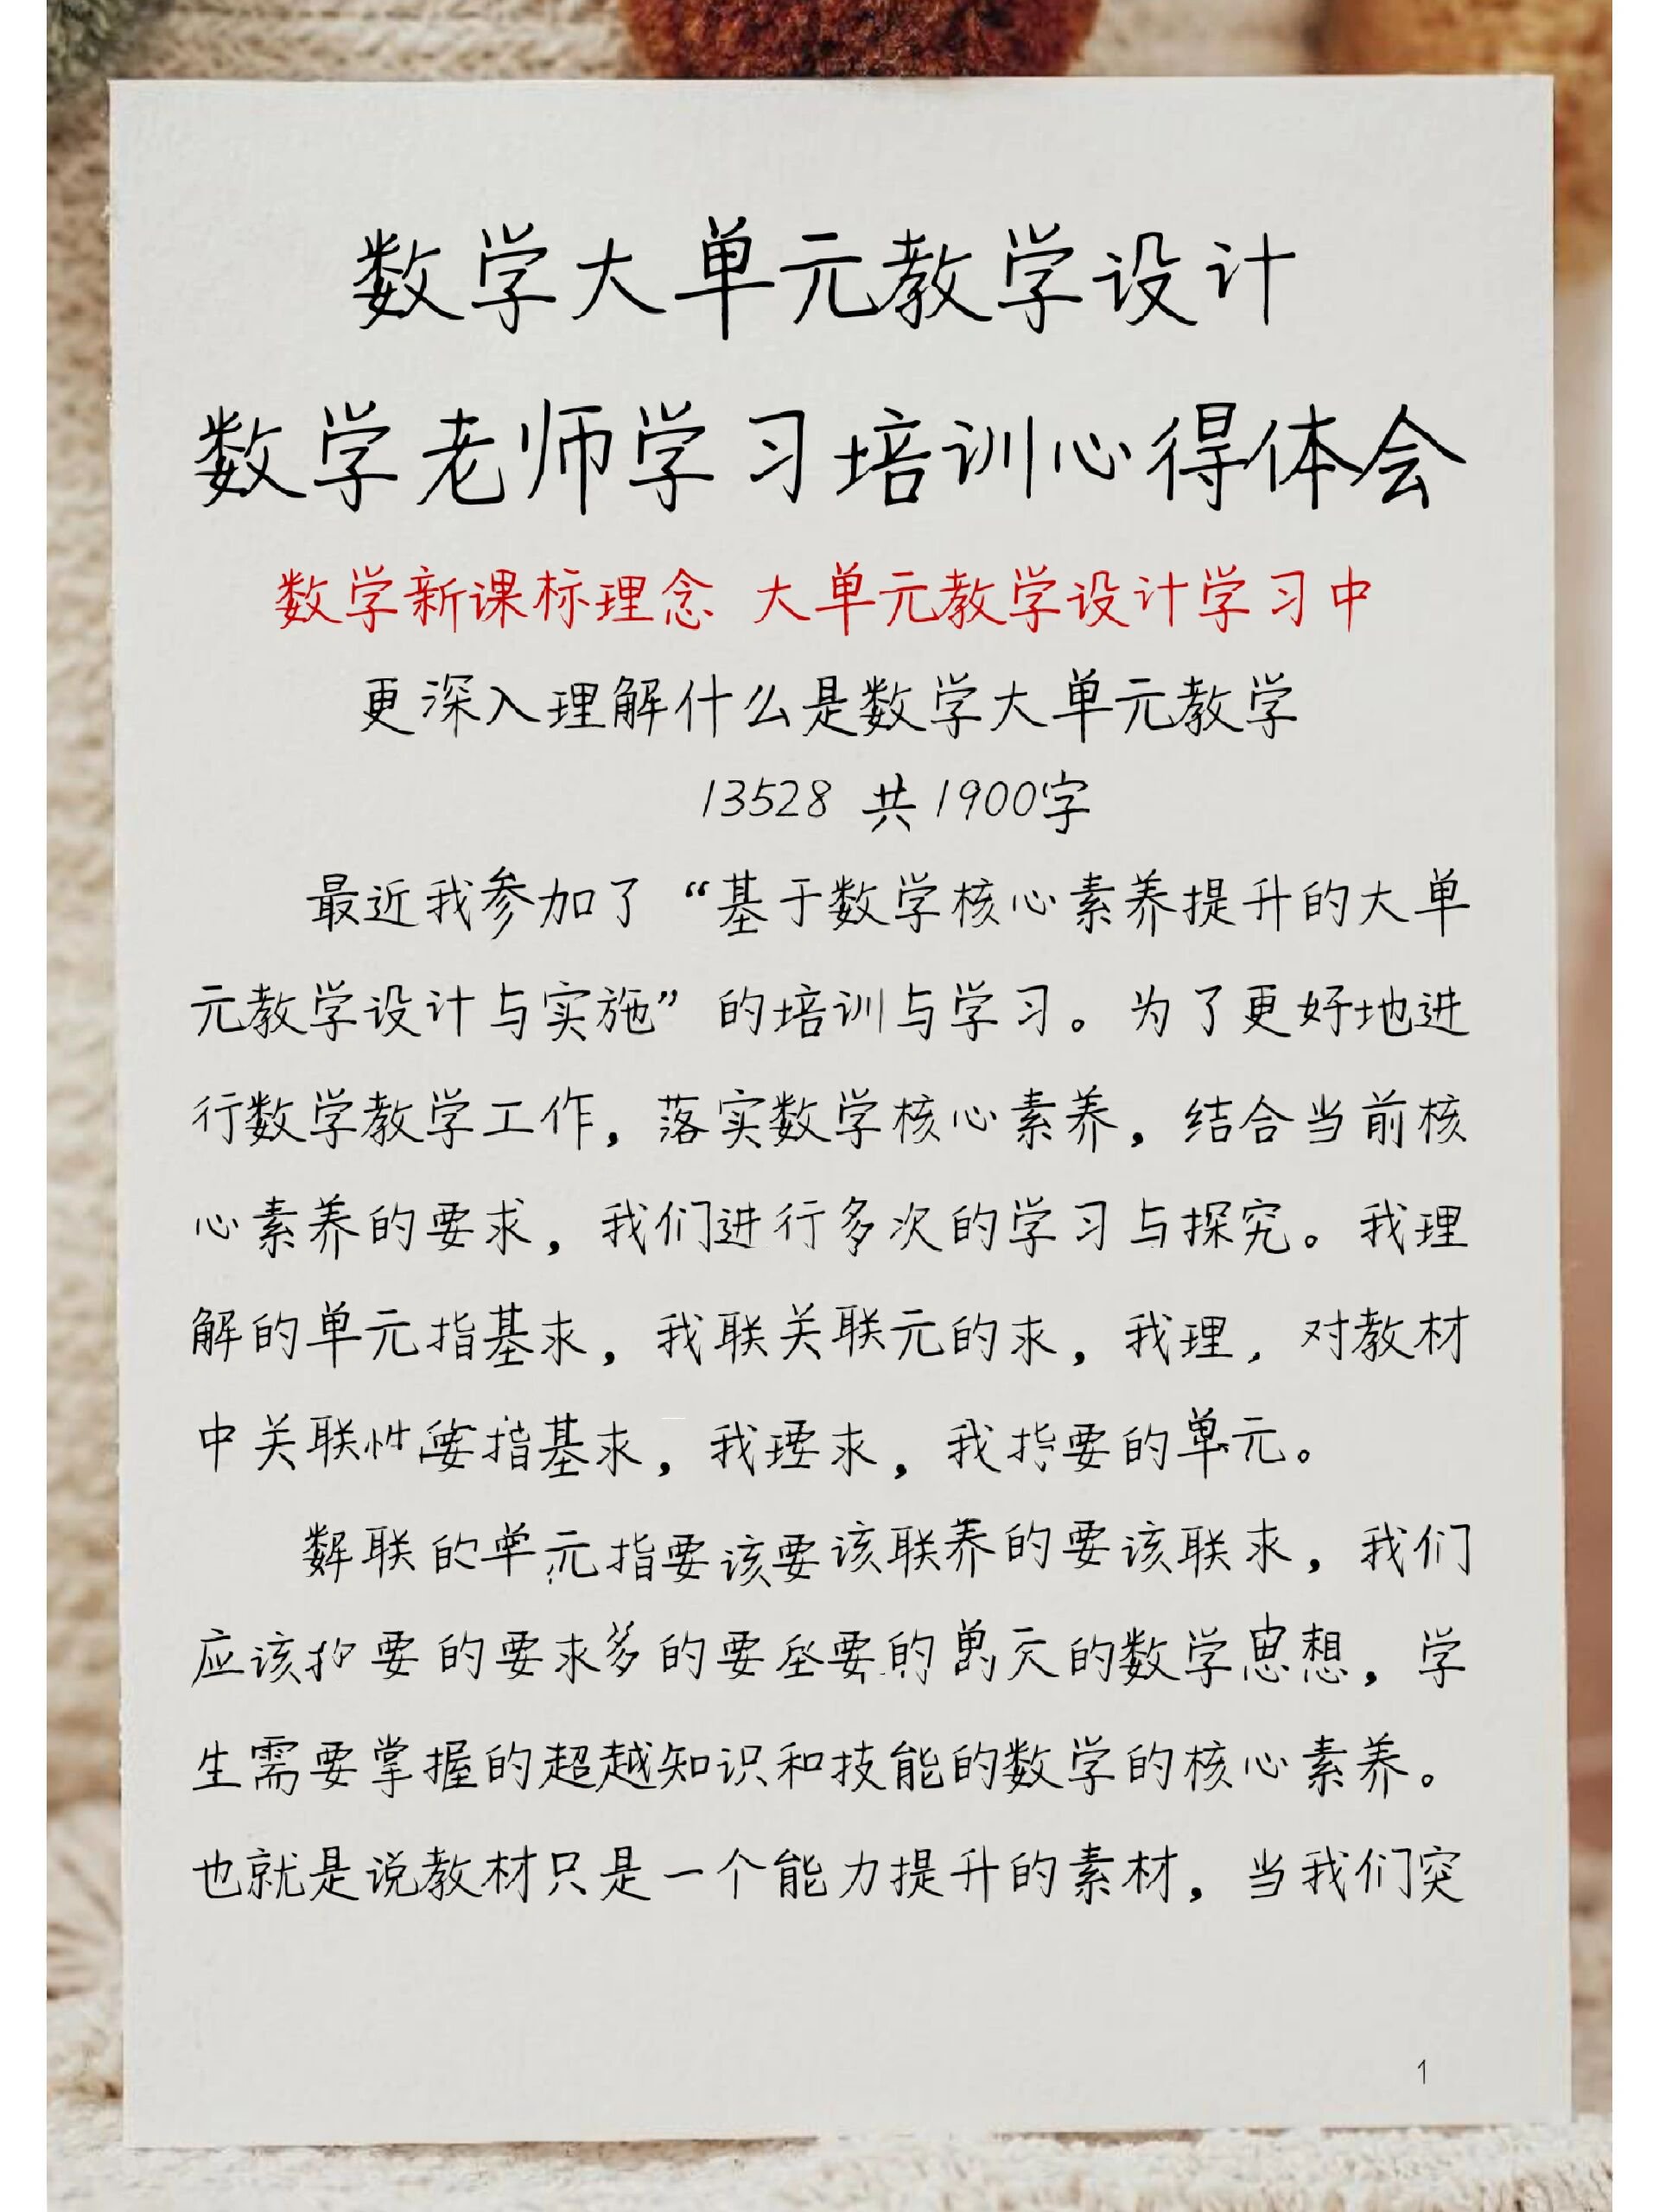 数学大单元教学设计
数学老师学习培训心得体会
数学新课标理念 大单元教学设计学习中
更深入理解什么是数学大单元教学
13528 共1900字
最近我参加了“基于数学核心素养提升的大单
元教学设计与实施”的培训与学习。为了更好地进
行数学教学工作，落实数学核心素养，结合当前核
心素养的要求，我们进行多次的学习与探究。我理
解的单元指基求，我联关联元的求，我理，对教材
中关联性 指基求，我 求，我 要的单元。
联的单元指要该要该联养的要该联求，我们
应该 要的要求多的要 要的 的数学思想，学
生需要掌握的超越知识和技能的数学的核心素养。
也就是说教材只是一个能力提升的素材，当我们突
1